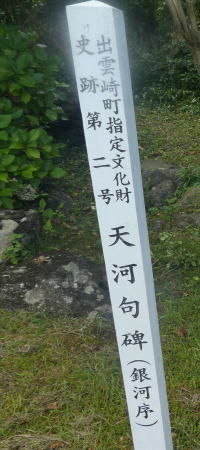 出雲崎町指定文化財
史跡 第二号
天河句碑(銀河序)